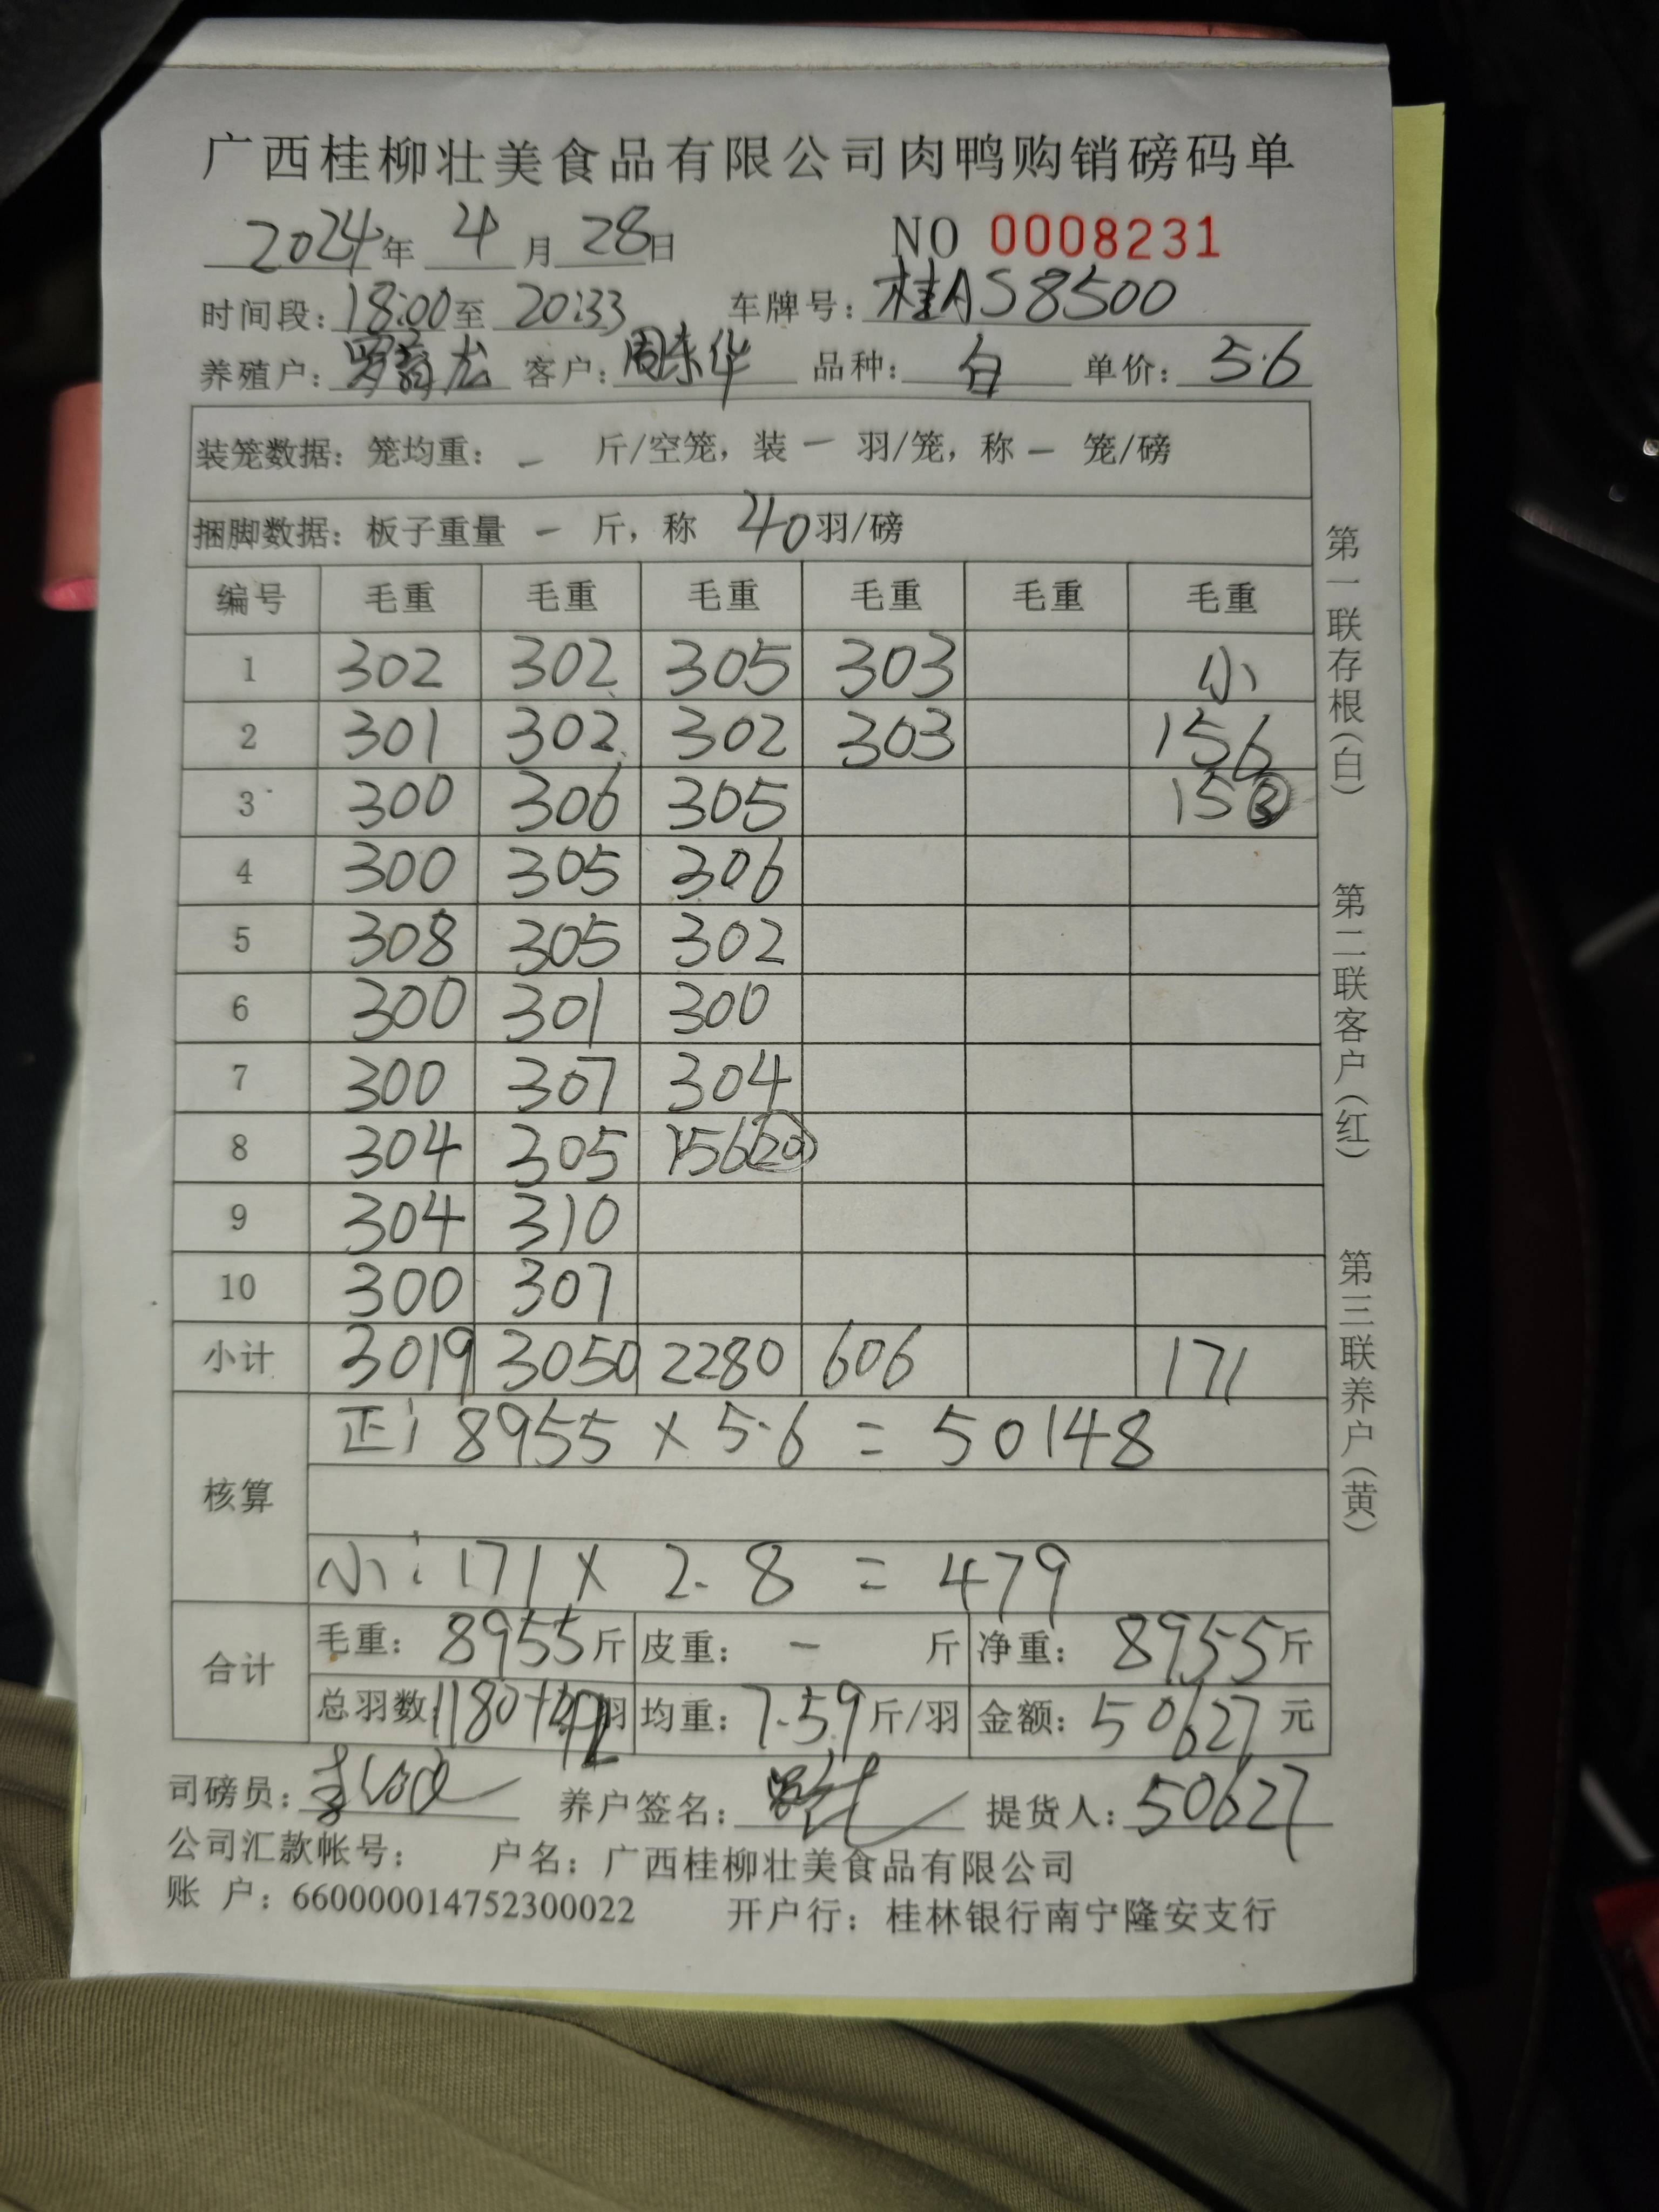 广西桂柳壮美食品有限公司肉鸭购销磅码单
2024年 4月28日 NO 0008231
时间段：18:00至 20:33 车牌号：桂AS8500
养殖户： 客户：周东华 品种：白 单价：5.6
装笼数据：笼均重：- 斤/空笼，装 - 羽/笼，称 - 笼/磅
捆脚数据：板子重量 - 斤，称 40羽/磅
编号 毛重 毛重 毛重 毛重 毛重 毛重
1 302 302 305 303 小
2 301 302 302 303 156
3 300 306 305 15
4 300 305 306
5 308 305 302
6 300 301 300
7 300 307 304
8 304 305 156 20
9 304 310
10 300 307
小计 3019 3050 2280 606 171
核算
正: 8955 × 5.6 = 50148
小: 171 × 2.8 = 479
合计
毛重：8955斤 皮重：- 斤 净重：8955斤
总羽数：1180+ 羽 均重：7.59斤/羽 金额：50627元
司磅员： 养户签名： 提货人：50627
公司汇款帐号： 户名：广西桂柳壮美食品有限公司
账 户：660000014752300022 开户行：桂林银行南宁隆安支行
第一联存根（白）
第二联客户（红）
第三联养户（黄）